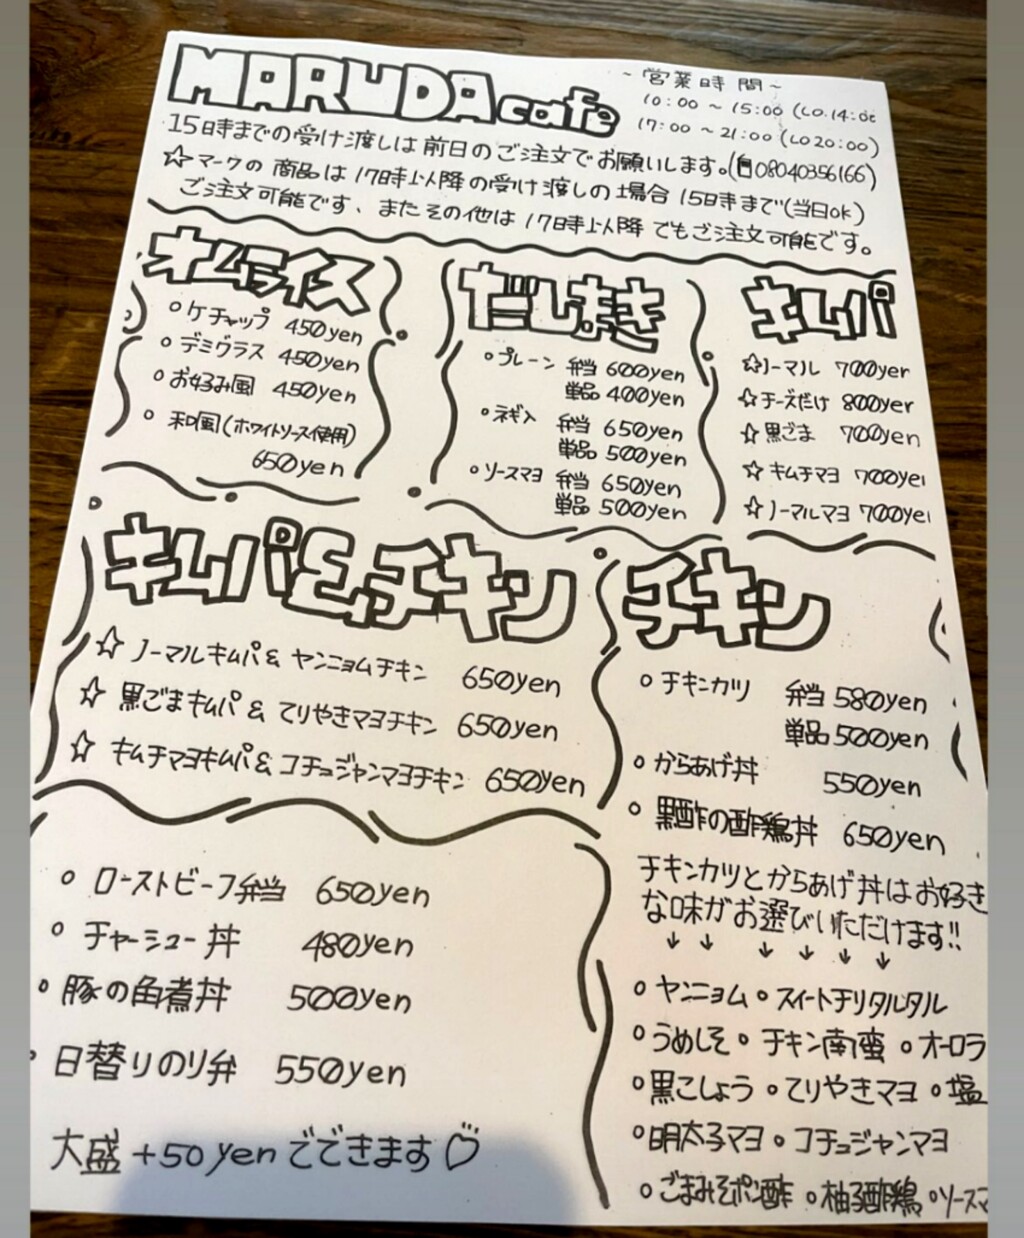 MARUDA cafe
~ 営業時間 ~
10:00 ~ 15:00 (LO.14:
17:00 ~ 21:00 (LO20:00)
15時までの受け渡しは前日のご注文でお願いします。(08040356166)
☆マークの商品は17時以降の受け渡しの場合15時まで(当日ok)
ご注文可能です、またその他は17時以降でもご注文可能です。
オムライス
○ケチャップ 450yen
○デミグラス 450yen
○お好み風 450yen
○和風(ホワイトソース使用)
650yen
だしまき
○プレーン 弁当 600yen
単品 400yen
○ネギ入 弁当 650yen
単品 500yen
○ソースマヨ 弁当 650yen
単品 500yen
キムパ
☆ノーマル 700yen
☆チーズだけ 800yen
☆黒ごま 700yen
☆キムチマヨ 700yen
☆ノーマルマヨ 700yen
キムパ&チキン
☆ノーマルキムパ & ヤンニョムチキン 650yen
☆黒ごまキムパ & てりやきマヨチキン 650yen
☆キムチマヨキムパ & コチュジャンマヨチキン 650yen
チキン
○チキンカツ 弁当 580yen
単品 500yen
○からあげ丼 550yen
○黒酢の酢鶏丼 650yen
チキンカツとからあげ丼はお好き
な味がお選びいただけます!!
↓ ↓ ↓ ↓ ↓ ↓
○ヤンニョム ○スイートチリタルタル
○うめしそ ○チキン南蛮 ○オーロラ
○黒こしょう ○てりやきマヨ ○塩
○明太子マヨ ○コチュジャンマヨ
○ごまみそポン酢 ○柚子酢鶏 ○ソースマ
○ローストビーフ弁当 650yen
○チャーシュー丼 480yen
○豚の角煮丼 500yen
○日替りのり弁 550yen
大盛 +50yenでできます♡